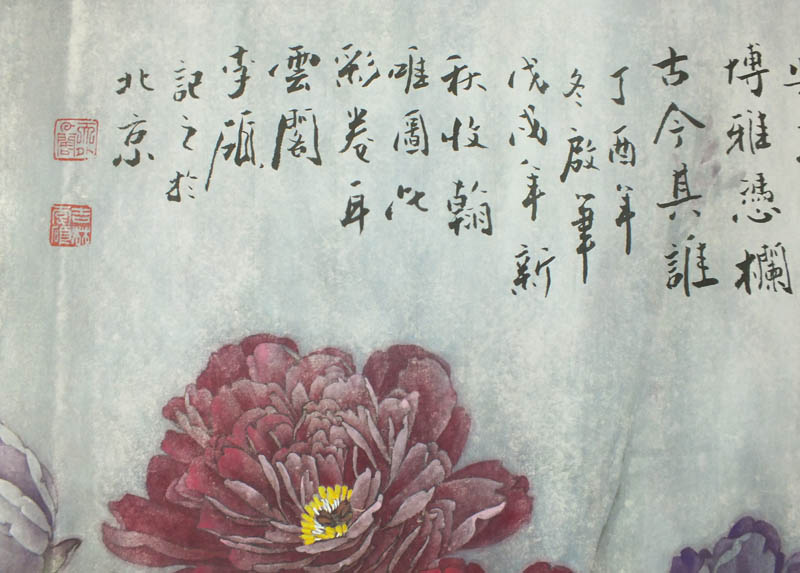 博雅憑欄
古今其誰
丁酉年
冬啟筆
戊戌年新
秋收翰
唯圖此
彩卷耳
雲閣
李
記之於
北京